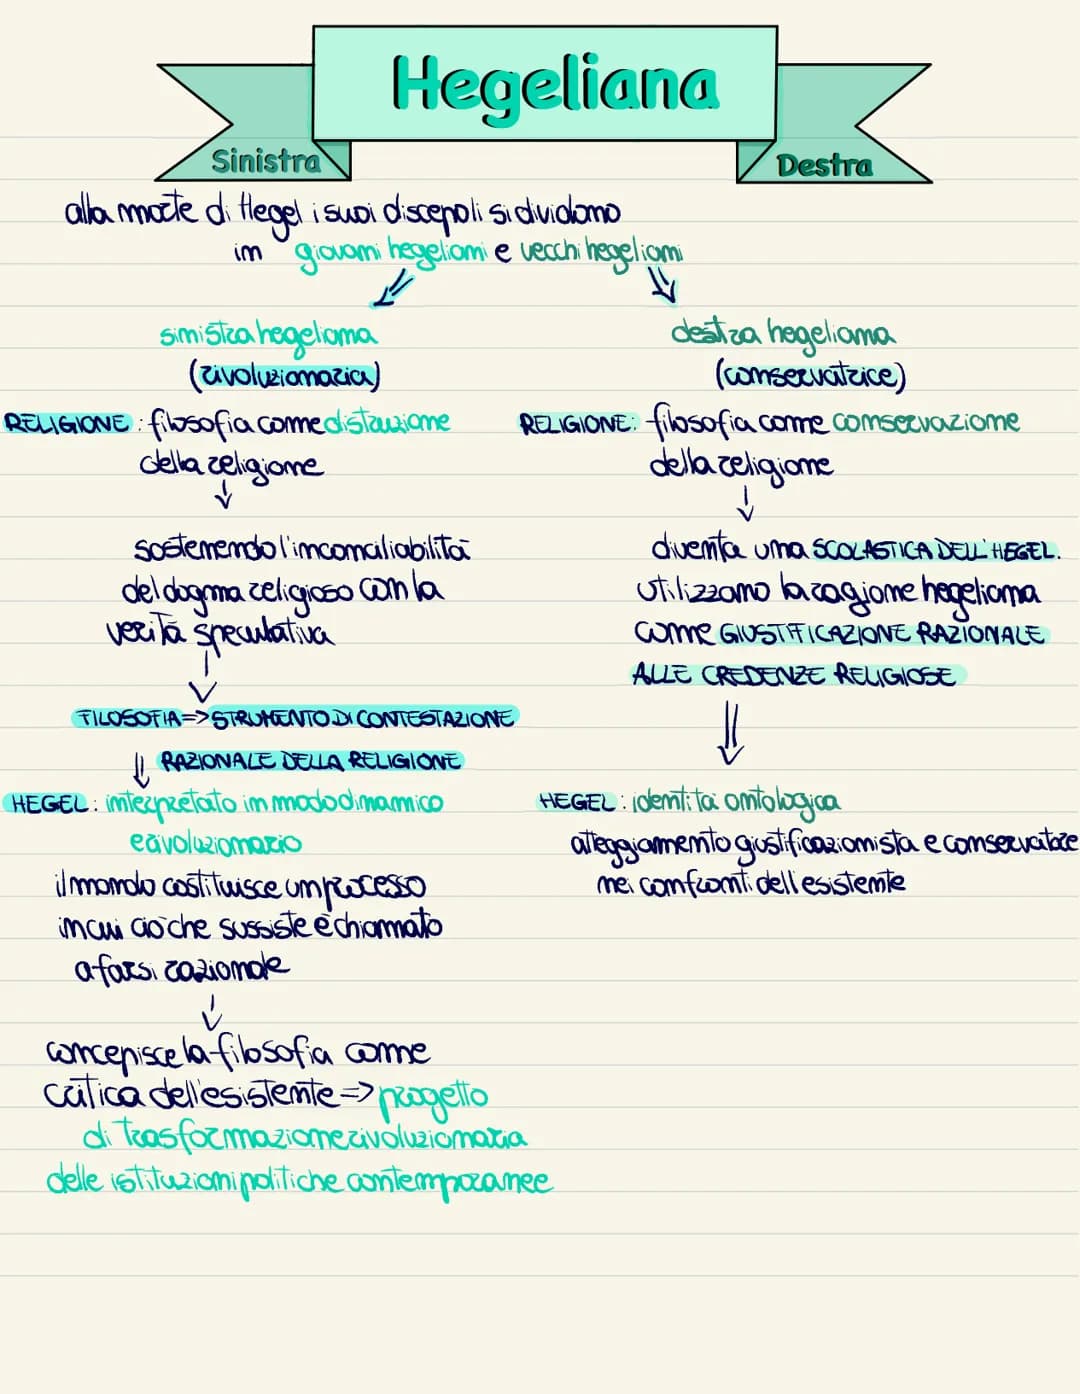 Hegeliana
Sinistra
Destra
alla morte di Hegel i suoi discepoli si dividono
in giovani hegeliani e vecchi hegeliani
sinistra hegeliana
(rivoluzionaria)
RELIGIONE: filosofia come distruzione
della religione
sostenendo l'inconciliabilità
del dogma religioso con la
verità speculativa
FILOSOFIA => STRUMENTO DI CONTESTAZIONE
RAZIONALE DELLA RELIGIONE
HEGEL: interpretato in modo dinamico
e rivoluzionario
il mondo costituisce un processo
in cui ciò che sussiste è chiamato
a farsi razionale
concepisce la filosofia come
critica dell'esistente => progetto
di trasformazione rivoluzionaria
delle istituzioni politiche contemporanee
destra hegeliana
(conservatrice)
RELIGIONE: filosofia come conservazione
della religione
diventa una SCOLASTICA DELL'HEGEL.
utilizzano la ragione hegeliana
come GIUSTIFICAZIONE RAZIONALE
ALLE CREDENZE RELIGIOSE
HEGEL: identità ontologica
atteggiamento giustificazionista e conservatore
nei confronti dell'esistente